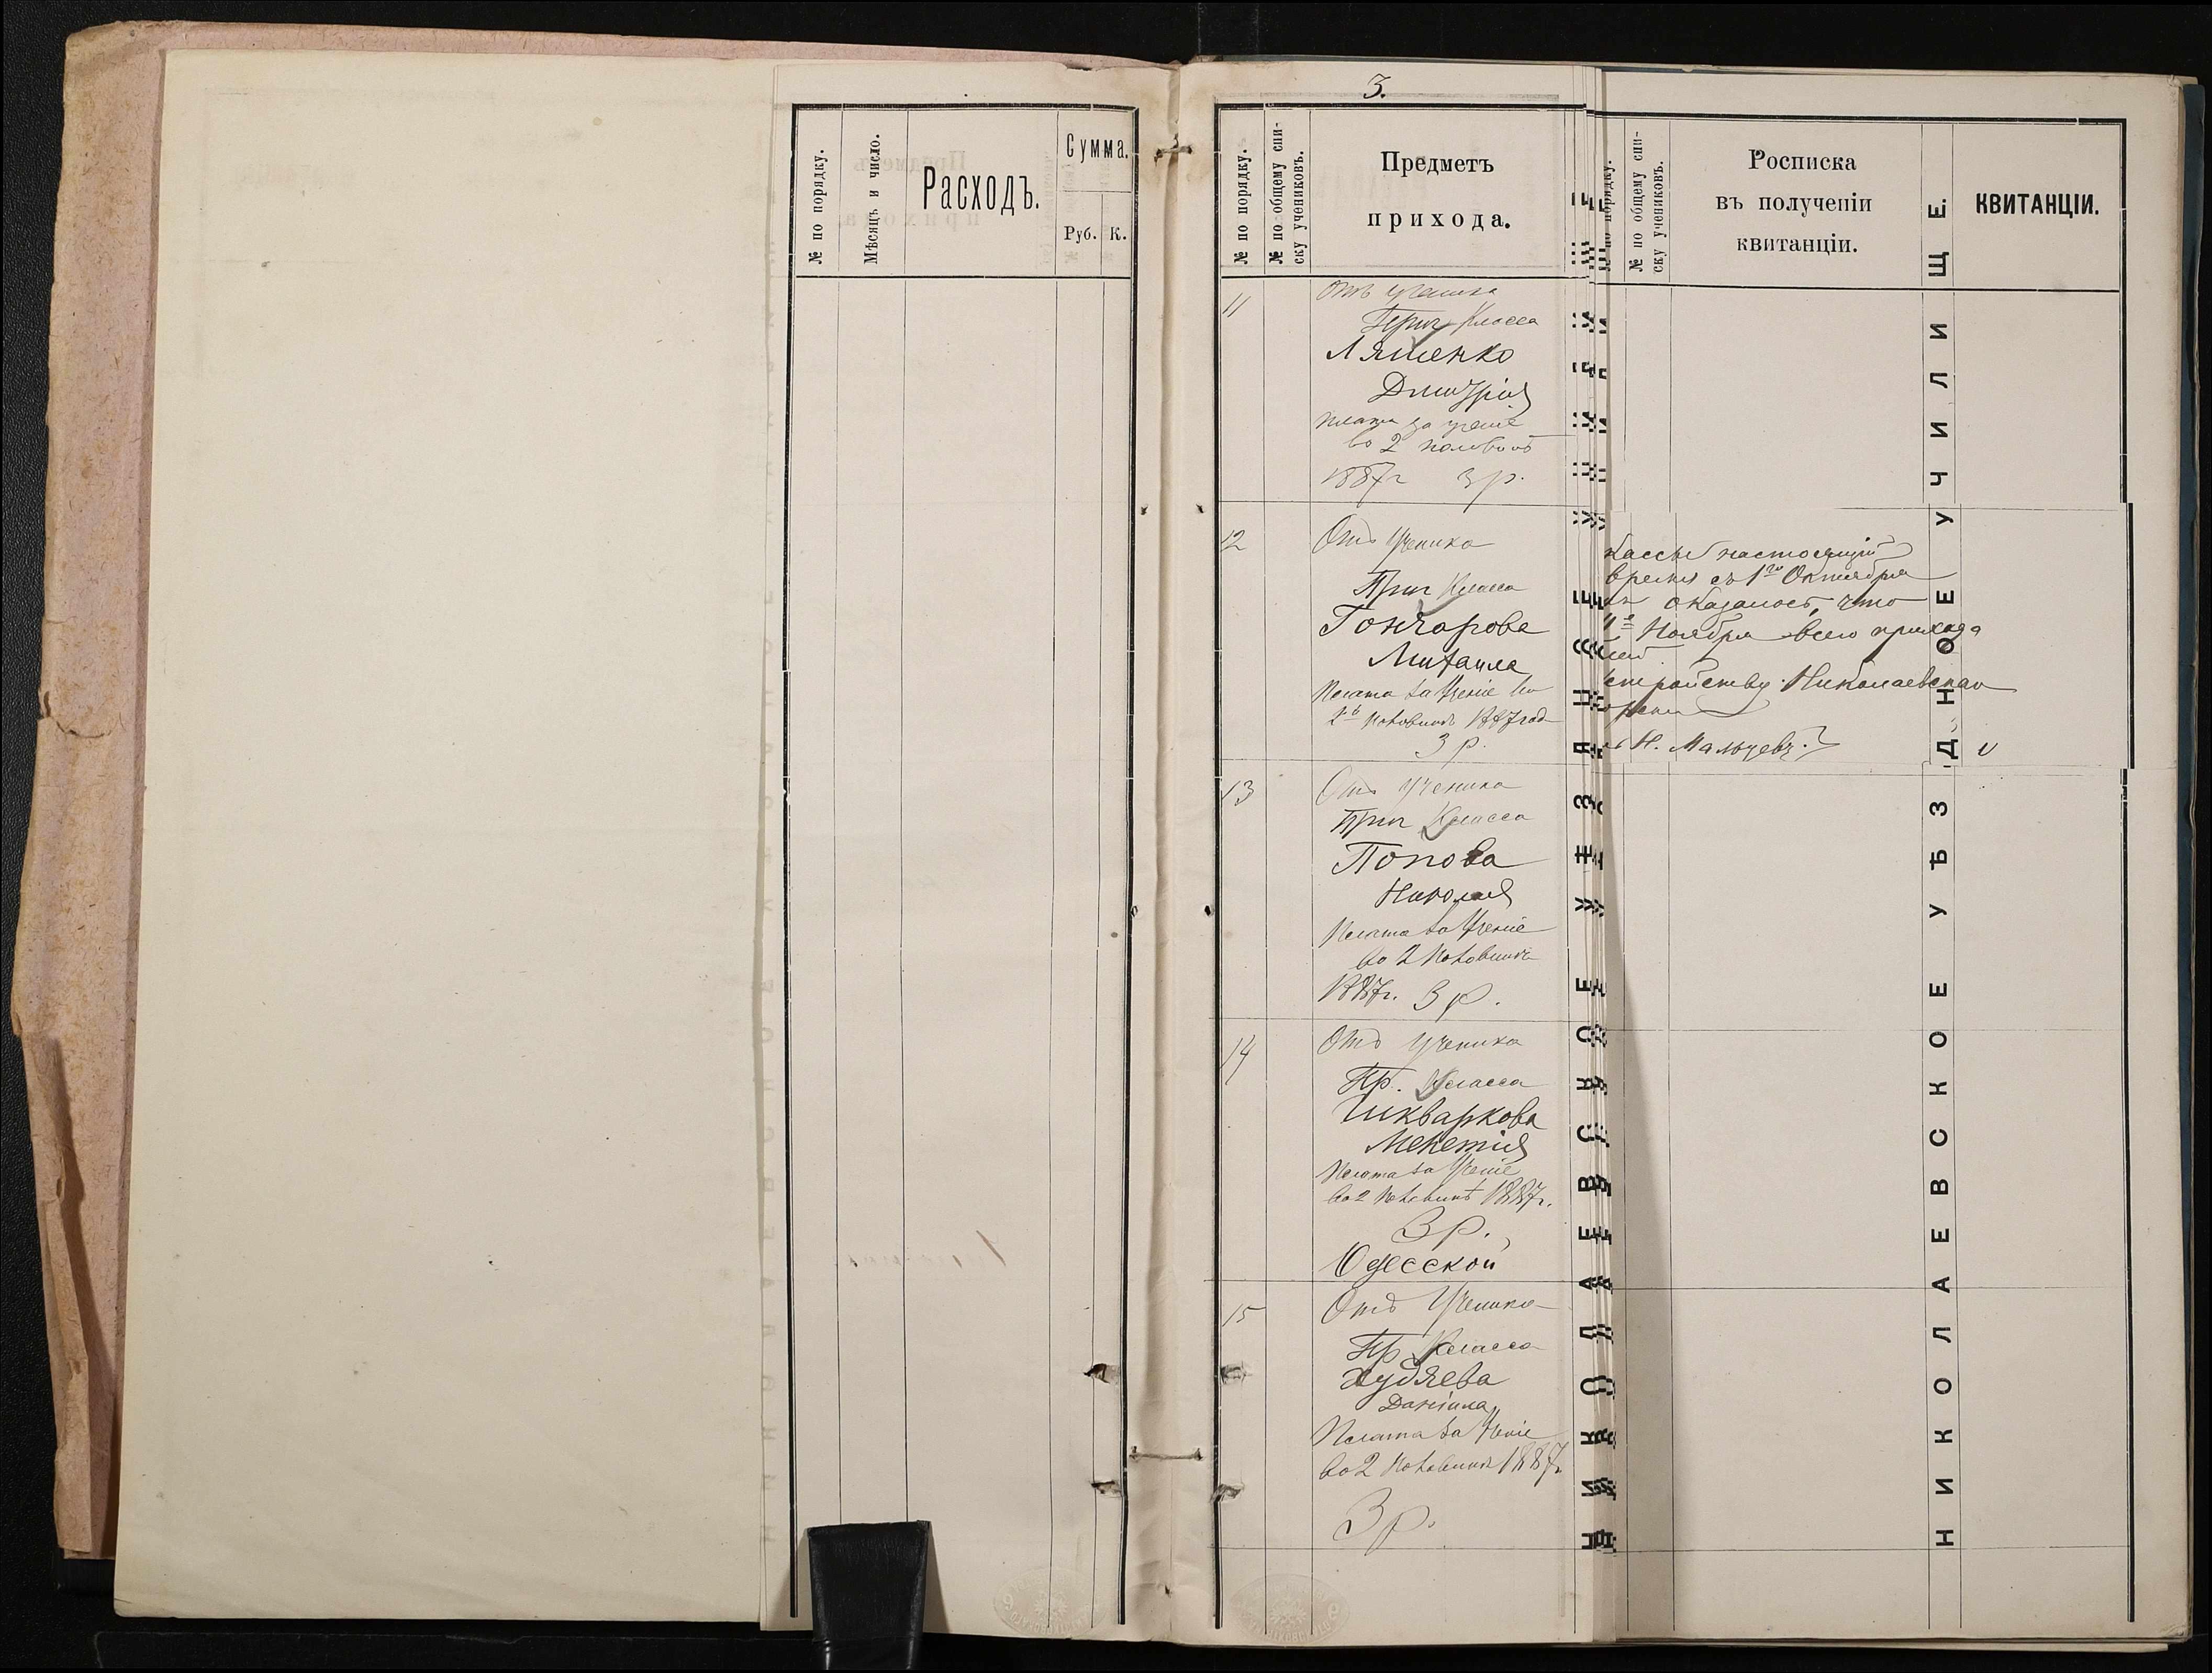 3.
№ по порядку.
Мѣсяцъ и число.
Расходъ.
Сумма.
Руб.
К.
№ по порядку.
№ по общему спи-
ску учениковъ.
Предметъ
прихода.
11
Отъ ученика
Приг Класса
Ляшенко
Дмитрія
плата за ученіе
во 2 половинѣ
1887г 3 р.
12
Отъ Ученика
Приг Класса
Гончарова
Михаила
Плата за Ученіе во
2й половинѣ 1887 год
3 р.
13
Отъ Ученика
Приг Класса
Попова
Николая
Плата за Ученіе
во 2 Половинѣ
1887г. 3 р.
14
Отъ Ученика
Пр. Класса
Шкваркова
Мекетія
Плата за Ученіе
во 2 Половинѣ 1887г.
3 р.
Одесской
15
Отъ Ученика
Пр Класса
Худяева
Даніила
Плата за Ученіе
во 2 Половинѣ 1887г
3 р.
по порядку.
№ по общему спи-
ску учениковъ.
Росписка
въ полученіи
квитанціи.
КВИТАНЦІИ.
НИКОЛАЕВСКОЕ УѢЗДНОЕ УЧИЛИЩЕ.
кассы настоящій
время съ 1го Октября
оказалось, что
Ноября всего прихода
стройству Николаевскаго
Н. Мальцевъ.